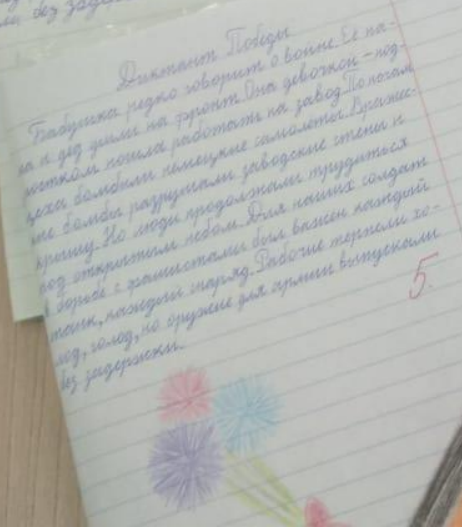 без
Диктант Победы
Бабушка редко говорит о войне. Её па-
па и дед ушли на фронт. Она девочкой-под-
ростком пошла работать на завод. По ночам
цехи бомбили немецкие самолёты. Вражес-
кие бомбы разрушали заводские стены и
крышу. Но люди продолжали трудиться
под открытым небом. Для наших солдат
в борьбе с фашистами был важен каждый
танк, каждый снаряд. Рабочие терпели хо-
лод, голод, но оружие для армии выпускали
без задержки.
5.